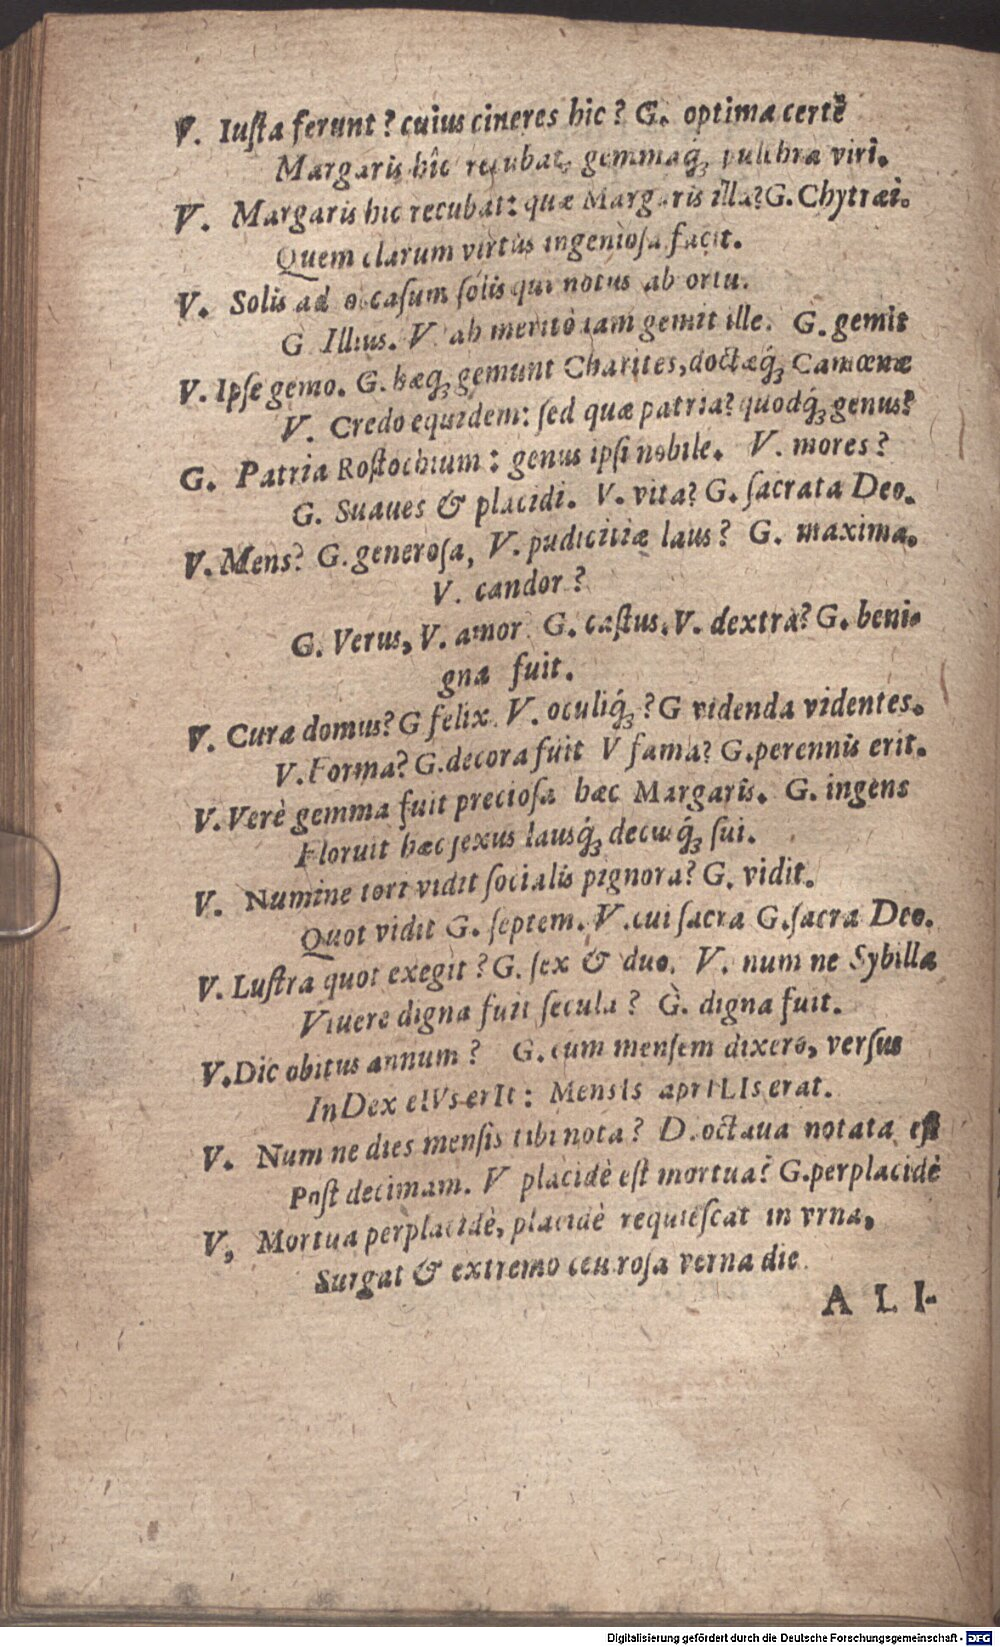 V. Iuſta ferunt? cuius cineres hic? G. optima certè
Margaris hîc recubat, gemmaq́ꝫ pulchra viri.
V. Margaris hic recubat: quæ Margaris illa? G. Chytræi.
Quem clarum virtus ingenioſa facit.
V. Solis ad occaſum ſolis qui notus ab ortu.
G Illius. V ah merito iam gemit ille. G. gemit
V. Ipſe gemo. G. hæq́ꝫ gemunt Charites, doctæq́ꝫ Camœnæ
V. Credo equidem: ſed quæ patria? quodq́ꝫ genus?
G. Patria Roſtochium: genus ipſi nobile. V. mores?
G. Suaues & placidi. V. vita? G. ſacrata Deo.
V. Mens? G. generoſa, V. pudicitiæ laus? G. maxima.
V. candor?
G. Verus, V. amor G. caſtus. V. dextra? G. beni-
gna fuit.
V. Cura domus? G felix. V. oculiq́ꝫ? G videnda videntes.
V. Forma? G. decora fuit V fama? G. perennis erit.
V. Verè gemma fuit precioſa hæc Margaris. G. ingens
Floruit hæc ſexus lausq́ꝫ decusq́ꝫ ſui.
V. Numine tori vidit ſocialis pignora? G. vidit.
Quot vidit G. ſeptem. V. cui ſacra G. ſacra Deo.
V. Luſtra quot exegit? G. ſex & duo. V. num ne Sybillæ
Viuere digna fuit ſecula? G. digna fuit.
V. Dic obitus annum? G. cum menſem dixero, verſus
InDex eIVs erIt: MensIs aprILIs erat.
V. Num ne dies menſis tibi nota? D. octaua notata eſt
Poſt decimam. V placidè eſt mortua? G. perplacidè
V, Mortua perplacidè, placidè requieſcat in vrna,
Surgat & extremo ceu roſa verna die.
A L I-
Digitalisierung gefördert durch die Deutsche Forschungsgemeinschaft - DFG